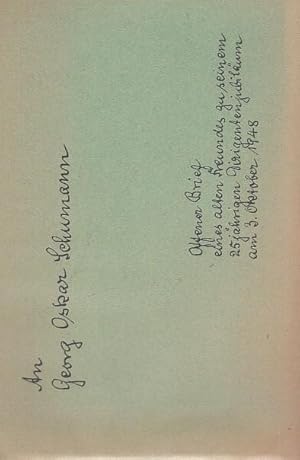 An
Georg Oskar Schumann
Offener Brief
eines alten Freundes zu seinem
25jährigen Dirigentenjubiläum
am 3. Oktober 1948